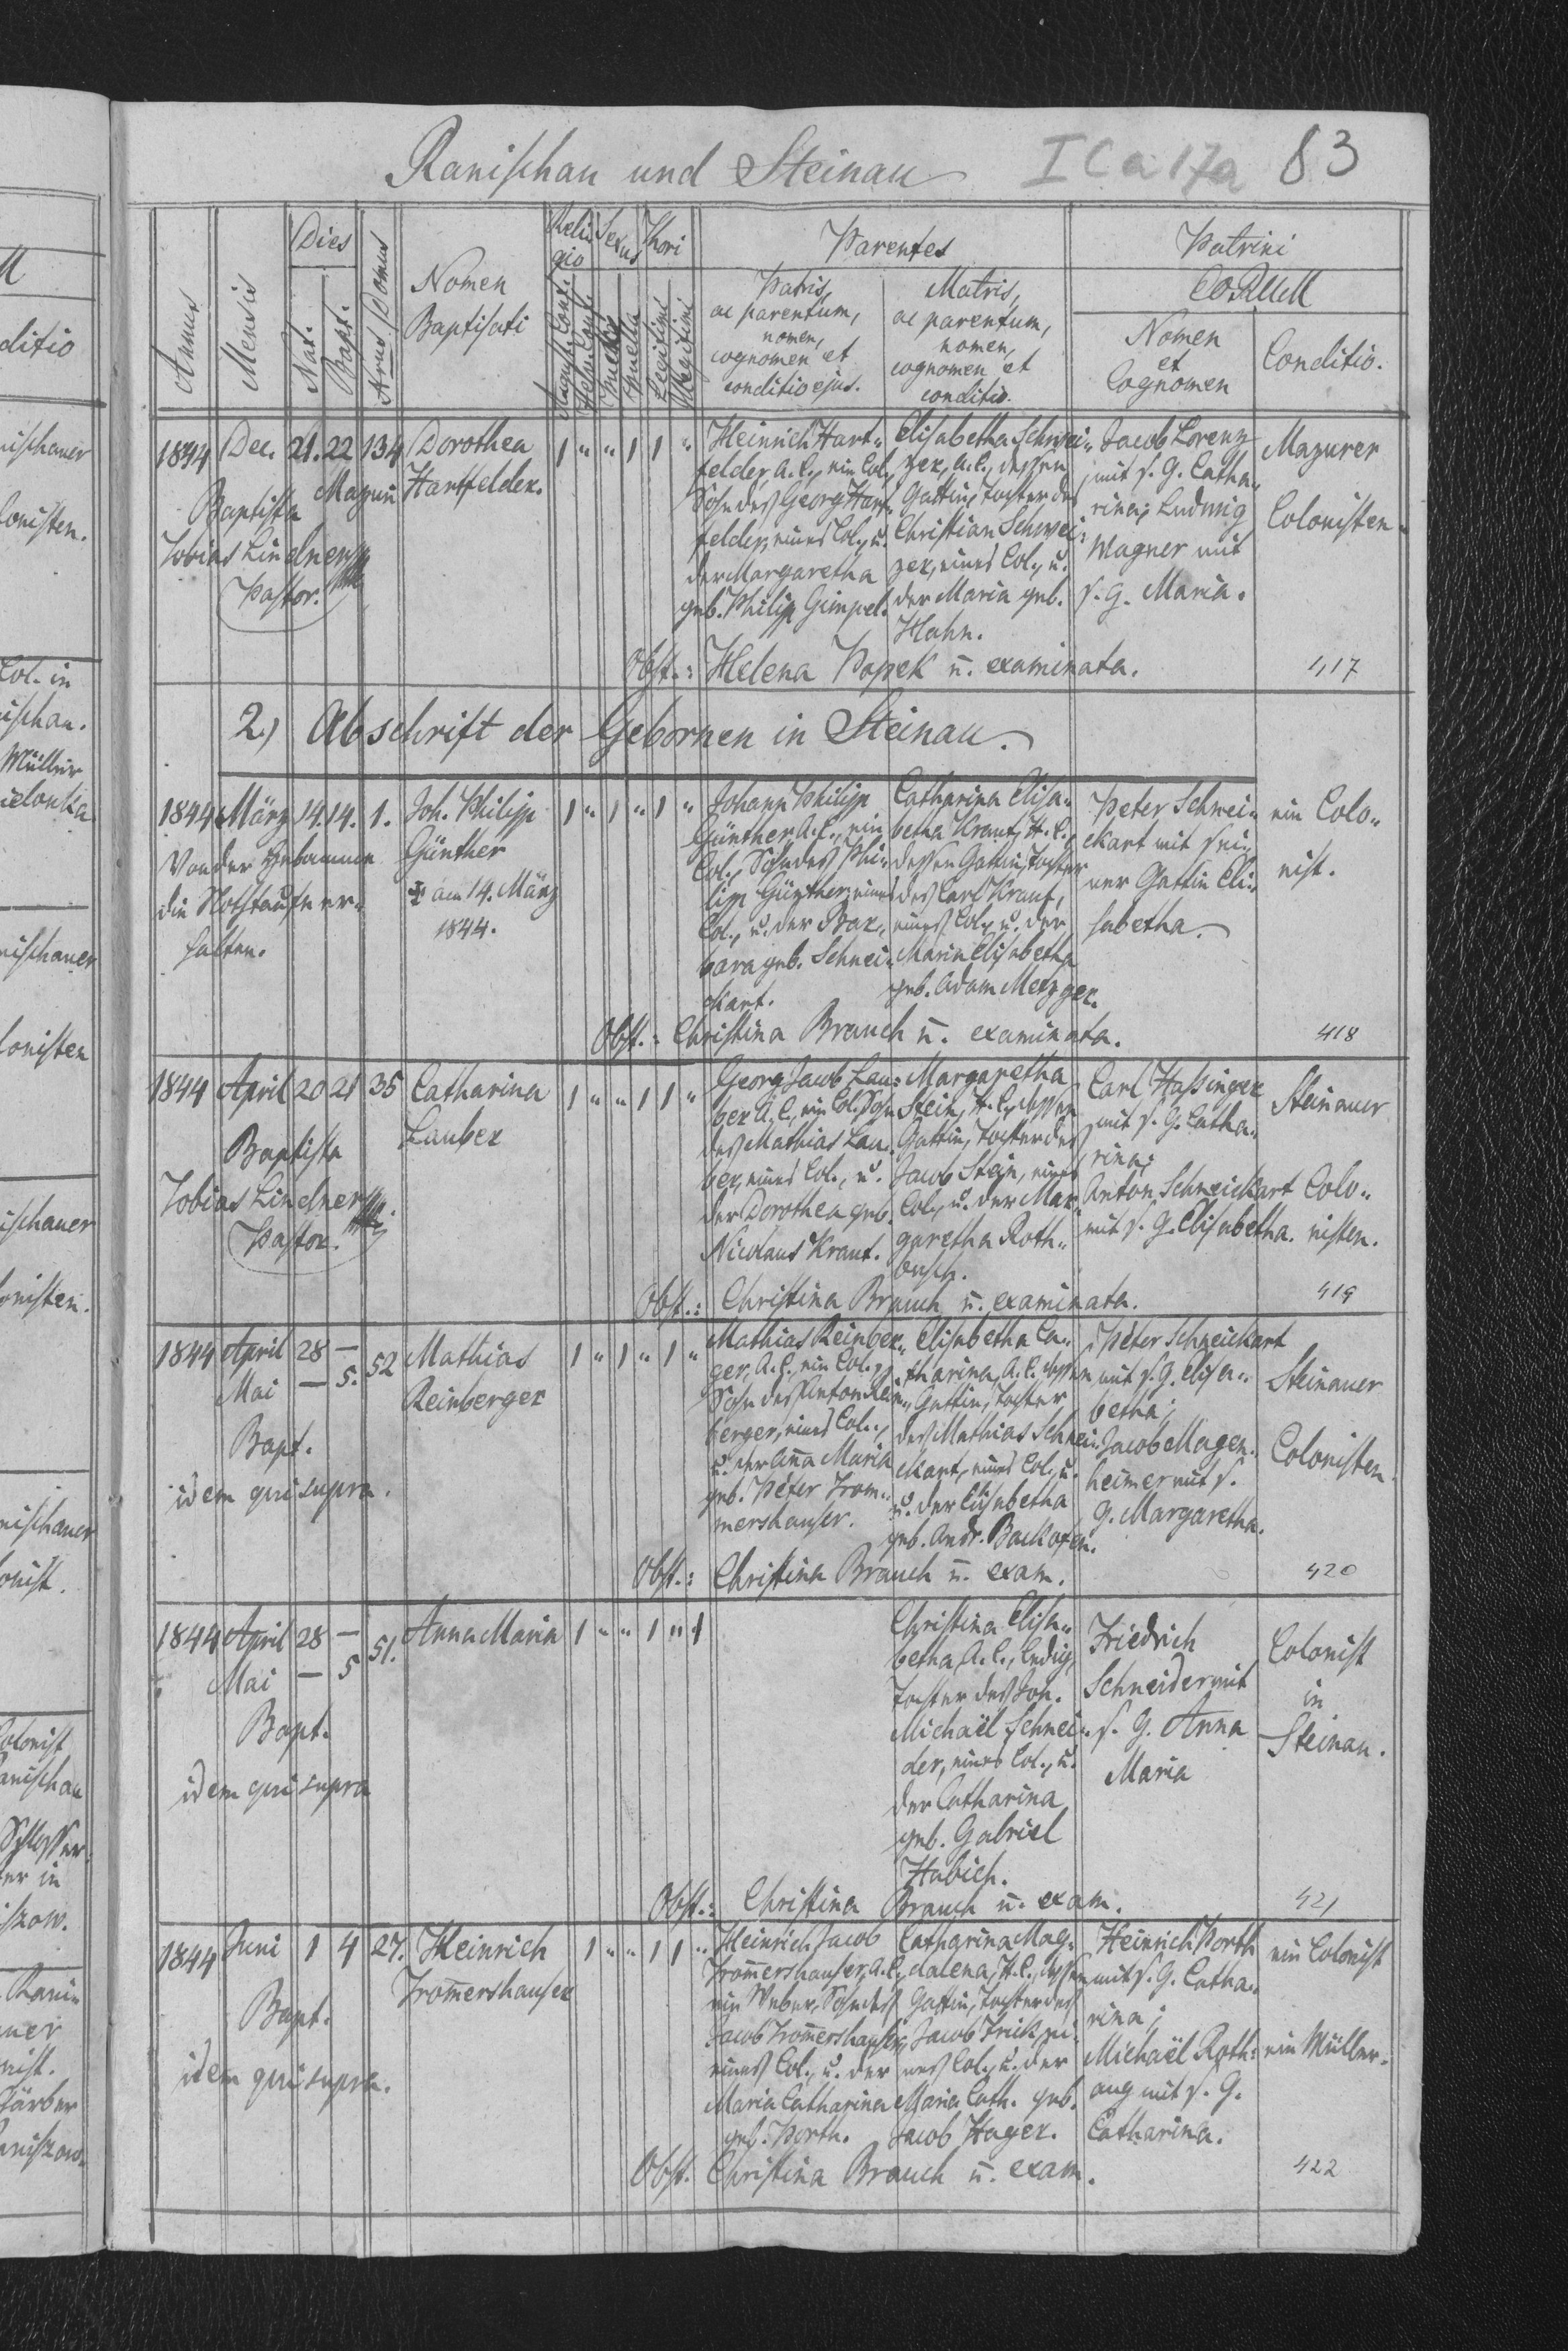 Ranischau und Steinau
I C a 17a 83
Annus
Mensis
Dies
Nat.
Bapt.
Nrus Domus
Nomen
Baptisati
Reli
gio
Sexus
Thori
August. Conf.
Helv. Conf.
Puer
Puella
Legitimi
Illegitimi
Parentes
Patris,
ac parentum,
nomen,
cognomen et
conditio ejus.
Matris,
ac parentum,
nomen,
cognomen et
conditio.
Patrini
eorum
Nomen
et
Cognomen
Conditio.
1844 Dec. 21. 22 134
Mazuri
Baptista
Tobias Lindner
Pastor.
Dorothea
Hartfelder.
1 " " 1 1 "
Heinrich Hart"
felder, A.C., ein Col.,
Sohn des Georg Hart"
felder, eines Col., u.
der Margaretha
geb. Philip Gimpel.
Elisabetha Schwei"
zer, A.C., dessen
Gattin, Tochter des
Christian Schwei"
zer, eines Col., u.
der Maria geb.
Hahn.
Jacob Lorenz
mit s. G. Catha"
rina; Ludwig
Wagner mit
s. G. Maria.
Mazurer
Colonisten.
Obst.: Helena Popek n. examinata.
417
2.) Abschrift der Gebornen in Steinau.
1844 März 14. 14. 1.
Von der Hebamme
die Nothtaufe er"
halten.
Joh. Philipp
Günther
am 14. März
1844.
1 " 1 " 1 "
Johann Philipp
Günther A.C., ein
Col., Sohn des Phi"
lipp Günther, eines
Col., u. der Bar"
bara geb. Schnei"
ckart.
Catharina Elisa"
betha Kraut, H.C.,
dessen Gattin, Tochter
des Carl Kraut,
eines Col., u. der
Maria Elisabetha
geb. Adam Metzger.
Peter Schnei"
ckart mit sei"
ner Gattin Eli"
sabetha.
ein Colo"
nist.
Obst.: Christina Brauch n. examinata.
418
1844 April 20 21 35
Baptista
Tobias Lindner
Pastor.
Catharina
Lauber
1 " " 1 1 "
Georg Jacob Lau"
ber A.C., ein Col., Sohn
des Mathias Lau"
ber, eines Col., u.
der Dorothea geb.
Nicolaus Kraut.
Margaretha
Stein, H.C., dessen
Gattin, Tochter des
Jacob Stein, eines
Col., u. der Mar"
garetha Roth"
busch.
Carl Hassinger
mit s. G. Catha"
rina;
Anton Schneickart
mit s. G. Elisabetha.
Steinauer
Colo"
nisten.
Obst.: Christina Brauch n. examinata.
419
1844 April 28 — 52
Mai — 5.
Bapt.
idem qui supra.
Mathias
Reinberger
1 " 1 " 1 "
Mathias Reinber"
ger, A.C., ein Col.,
Sohn des Anton Rein"
berger, eines Col.,
u. der Anna Maria
geb. Peter Trom"
mershauser.
Elisabetha Ca"
tharina, A.C. dessen
Gattin, Tochter
des Mathias Schnei"
ckart, eines Col., u.
u. der Elisabetha
geb. Andr. Backofen.
Peter Schneickart
mit s. G. Elisa"
betha;
Jacob Magen"
heimer mit s.
G. Margaretha.
Steinauer
Colonisten.
Obst.: Christina Brauch n. exam.
420
1844 April 28 — 51.
Mai — 5
Bapt.
idem qui supra
Anna Maria
1 " " 1 " 1
Christina Elisa"
betha, A.C., ledig,
Tochter des Joh.
Michaël Schnei"
der, eines Col., u.
der Catharina
geb. Gabriel
Habich.
Friedrich
Schneider mit
s. G. Anna
Maria
Colonist
in
Steinau.
Obst.: Christina Brauch n. exam.
421
1844 Juni 1 4 27.
Bapt.
idem qui supra.
Heinrich
Trommershauser
1 " " 1 1 "
Heinrich Jacob
Trommershauser, A.C.,
ein Weber, Sohn des
Jacob Trommershauser,
eines Col., u. der
Maria Catharina
geb. Porth.
Catharina Mag"
dalena, H.C., dessen
Gattin, Tochter des
Jacob Frick, ei"
nes Col., u. der
Maria Cath. geb.
Jacob Hager.
Heinrich Porth
mit s. G. Catha"
rina;
Michaël Roth"
aug mit s. G.
Catharina.
ein Colonist
ein Müller.
Obst. Christina Brauch n. exam.
422